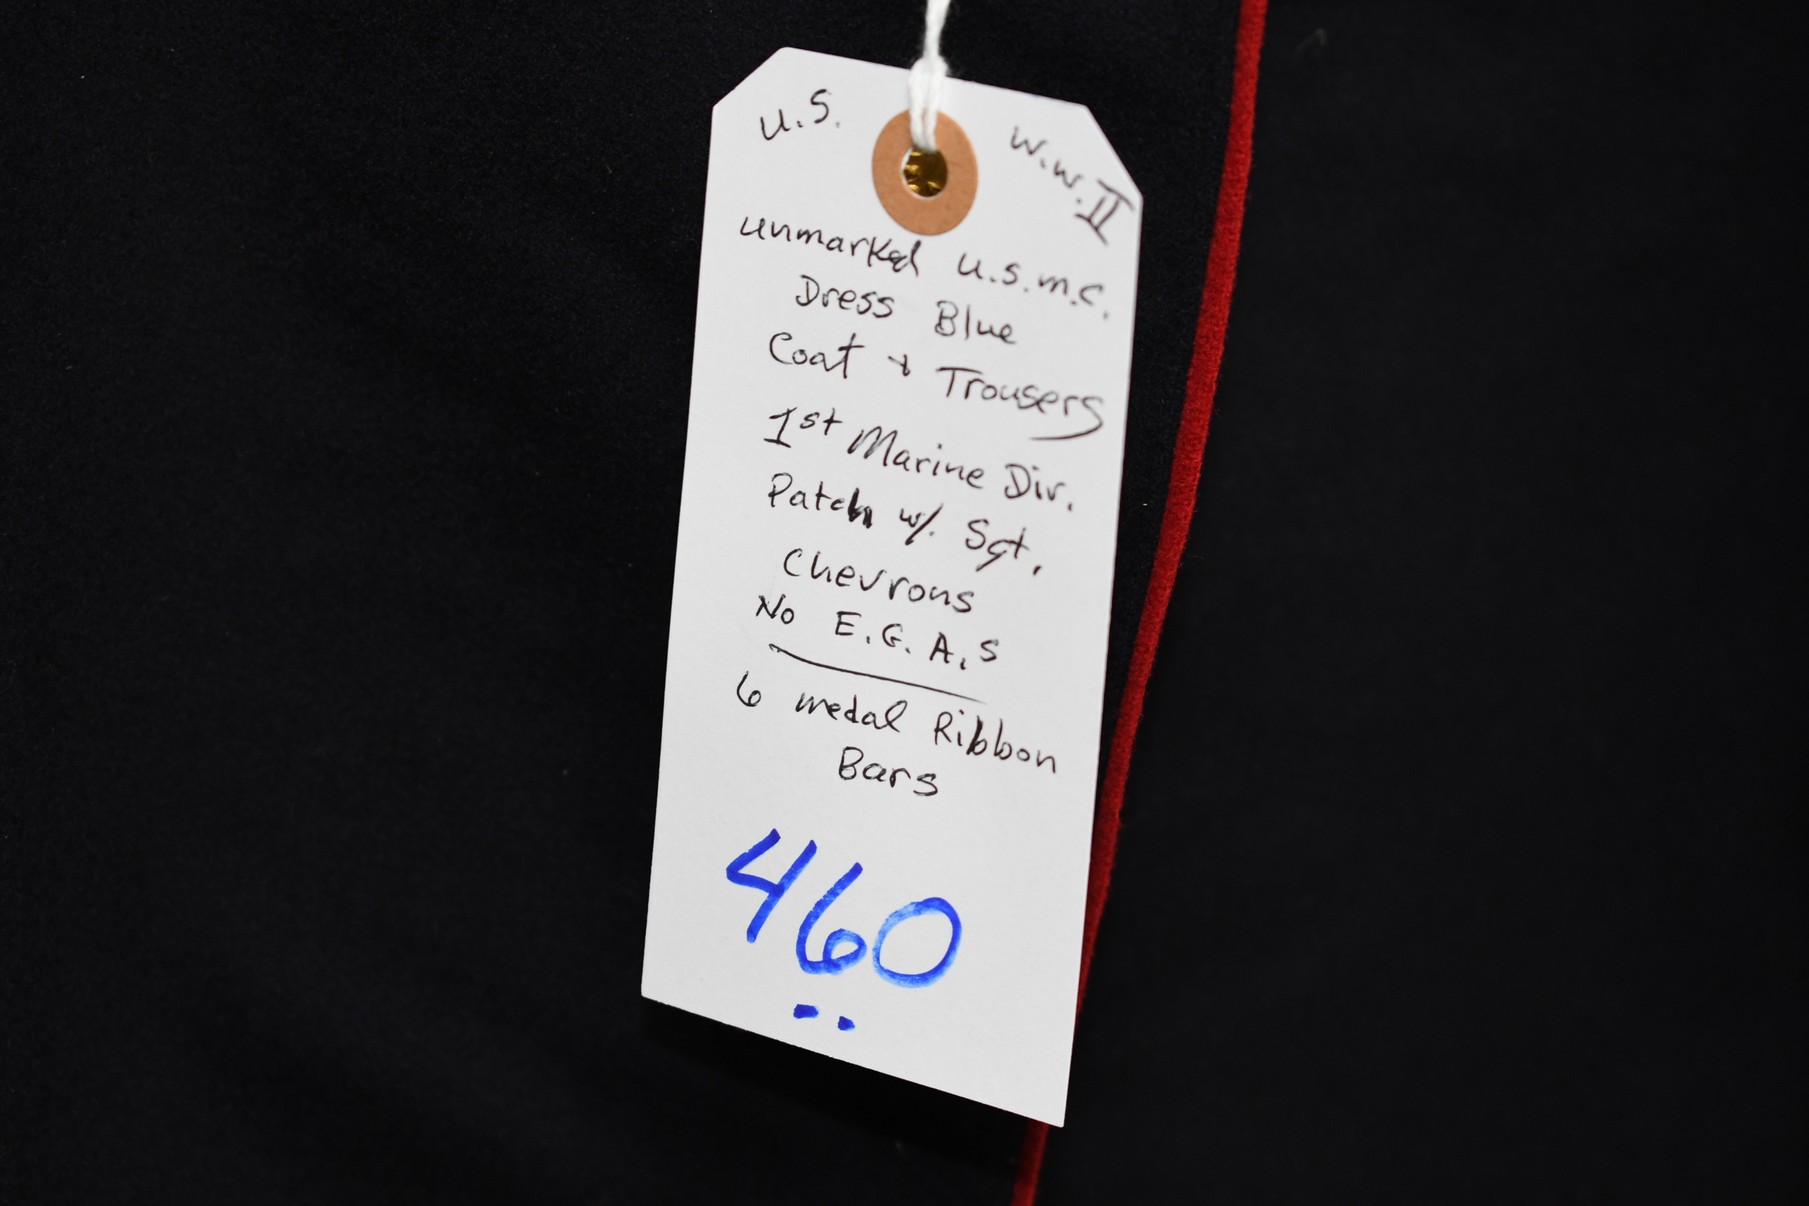 U.S.
W.W.II
unmarked U.S.M.C.
Dress Blue
Coat + Trousers
1st Marine Div.
Patch w/. Sgt.
Chevrons
No E.G.A.s
6 medal Ribbon
Bars
460